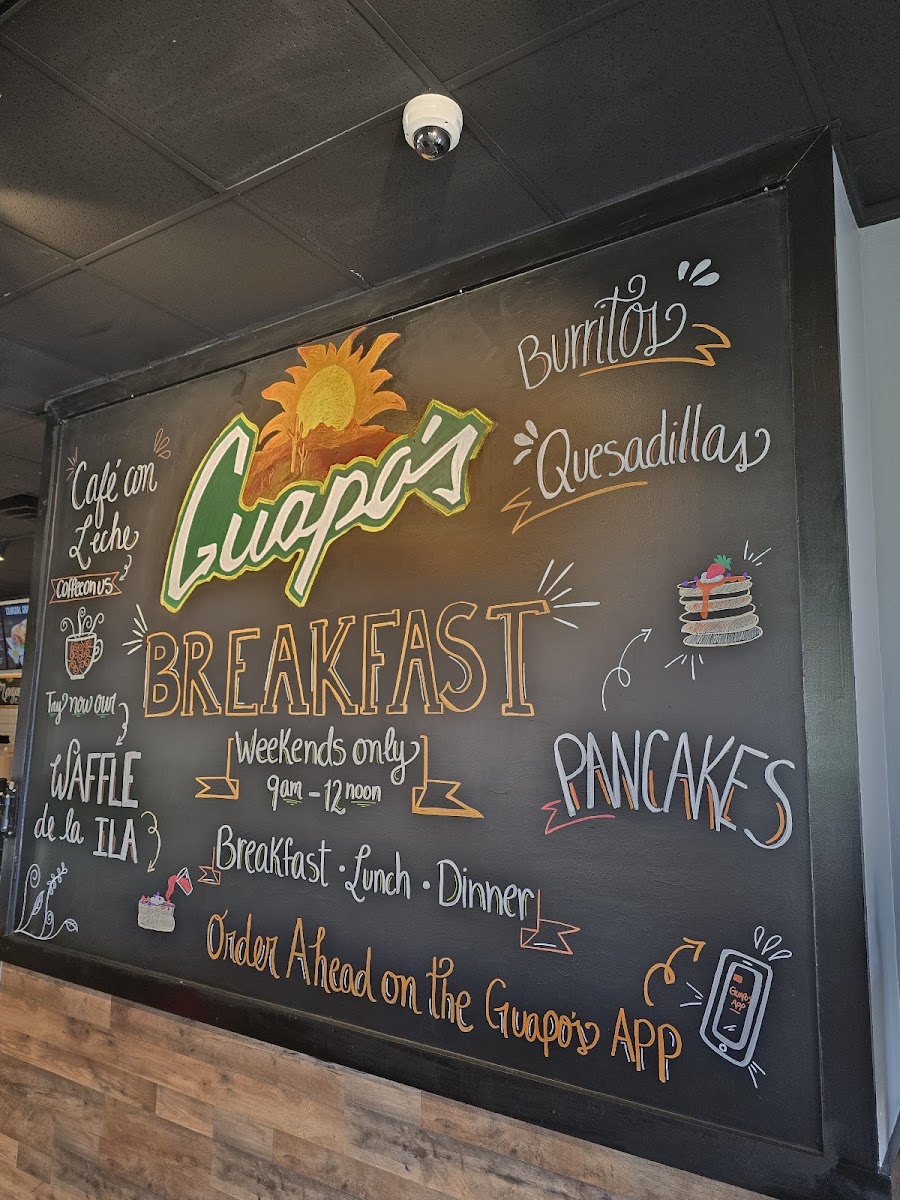 Guapo's
Burritos
Quesadillas
Café con
Leche
Coffee on us
Try now our
WAFFLE
de la ILA
BREAKFAST
Weekends only
9am - 12 noon
PANCAKES
Breakfast · Lunch · Dinner
Order Ahead on the Guapo's APP
GUAPO'S
APP